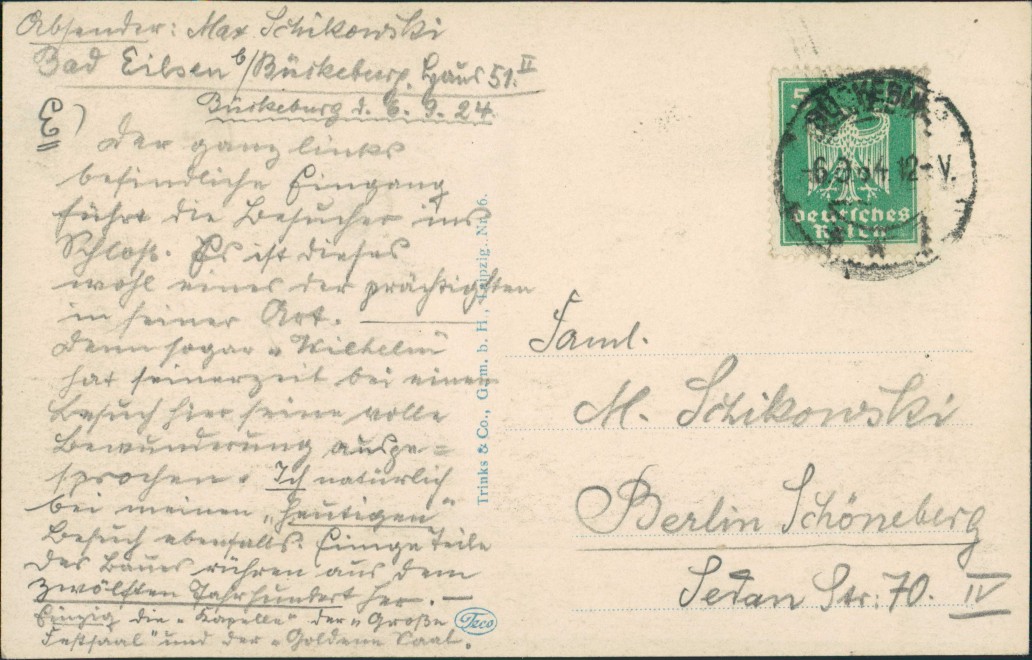 Absender: Max Schikowski
Bad Eilsen b/Bückeburg, Haus 51. II
Bückeburg d. 6. 9. 24.
Der ganz links
befindliche Eingang
führt die Besucher ins
Schloß. Es ist dieses
wohl eines der prächtigsten
in seiner Art.
Denn sogar „Wilhelm"
hat seinerzeit bei einem
Besuch hier seine volle
Bewunderung ausge=
sprochen. Ich natürlich
bei meinem „heutigen"
Besuch ebenfalls. Einige Teile
des Baues rühren aus dem
zwölften Jahrhundert her. —
Einzig die „Kapelle" der „Große
Festsaal" und der „Goldene Saal.
Trinks & Co., G.m.b.H., Leipzig.
Trco
5
Deutsches
Reich
12-V.
Faml.
M. Schikowski
Berlin Schöneberg
Sedan Str. 70. IV